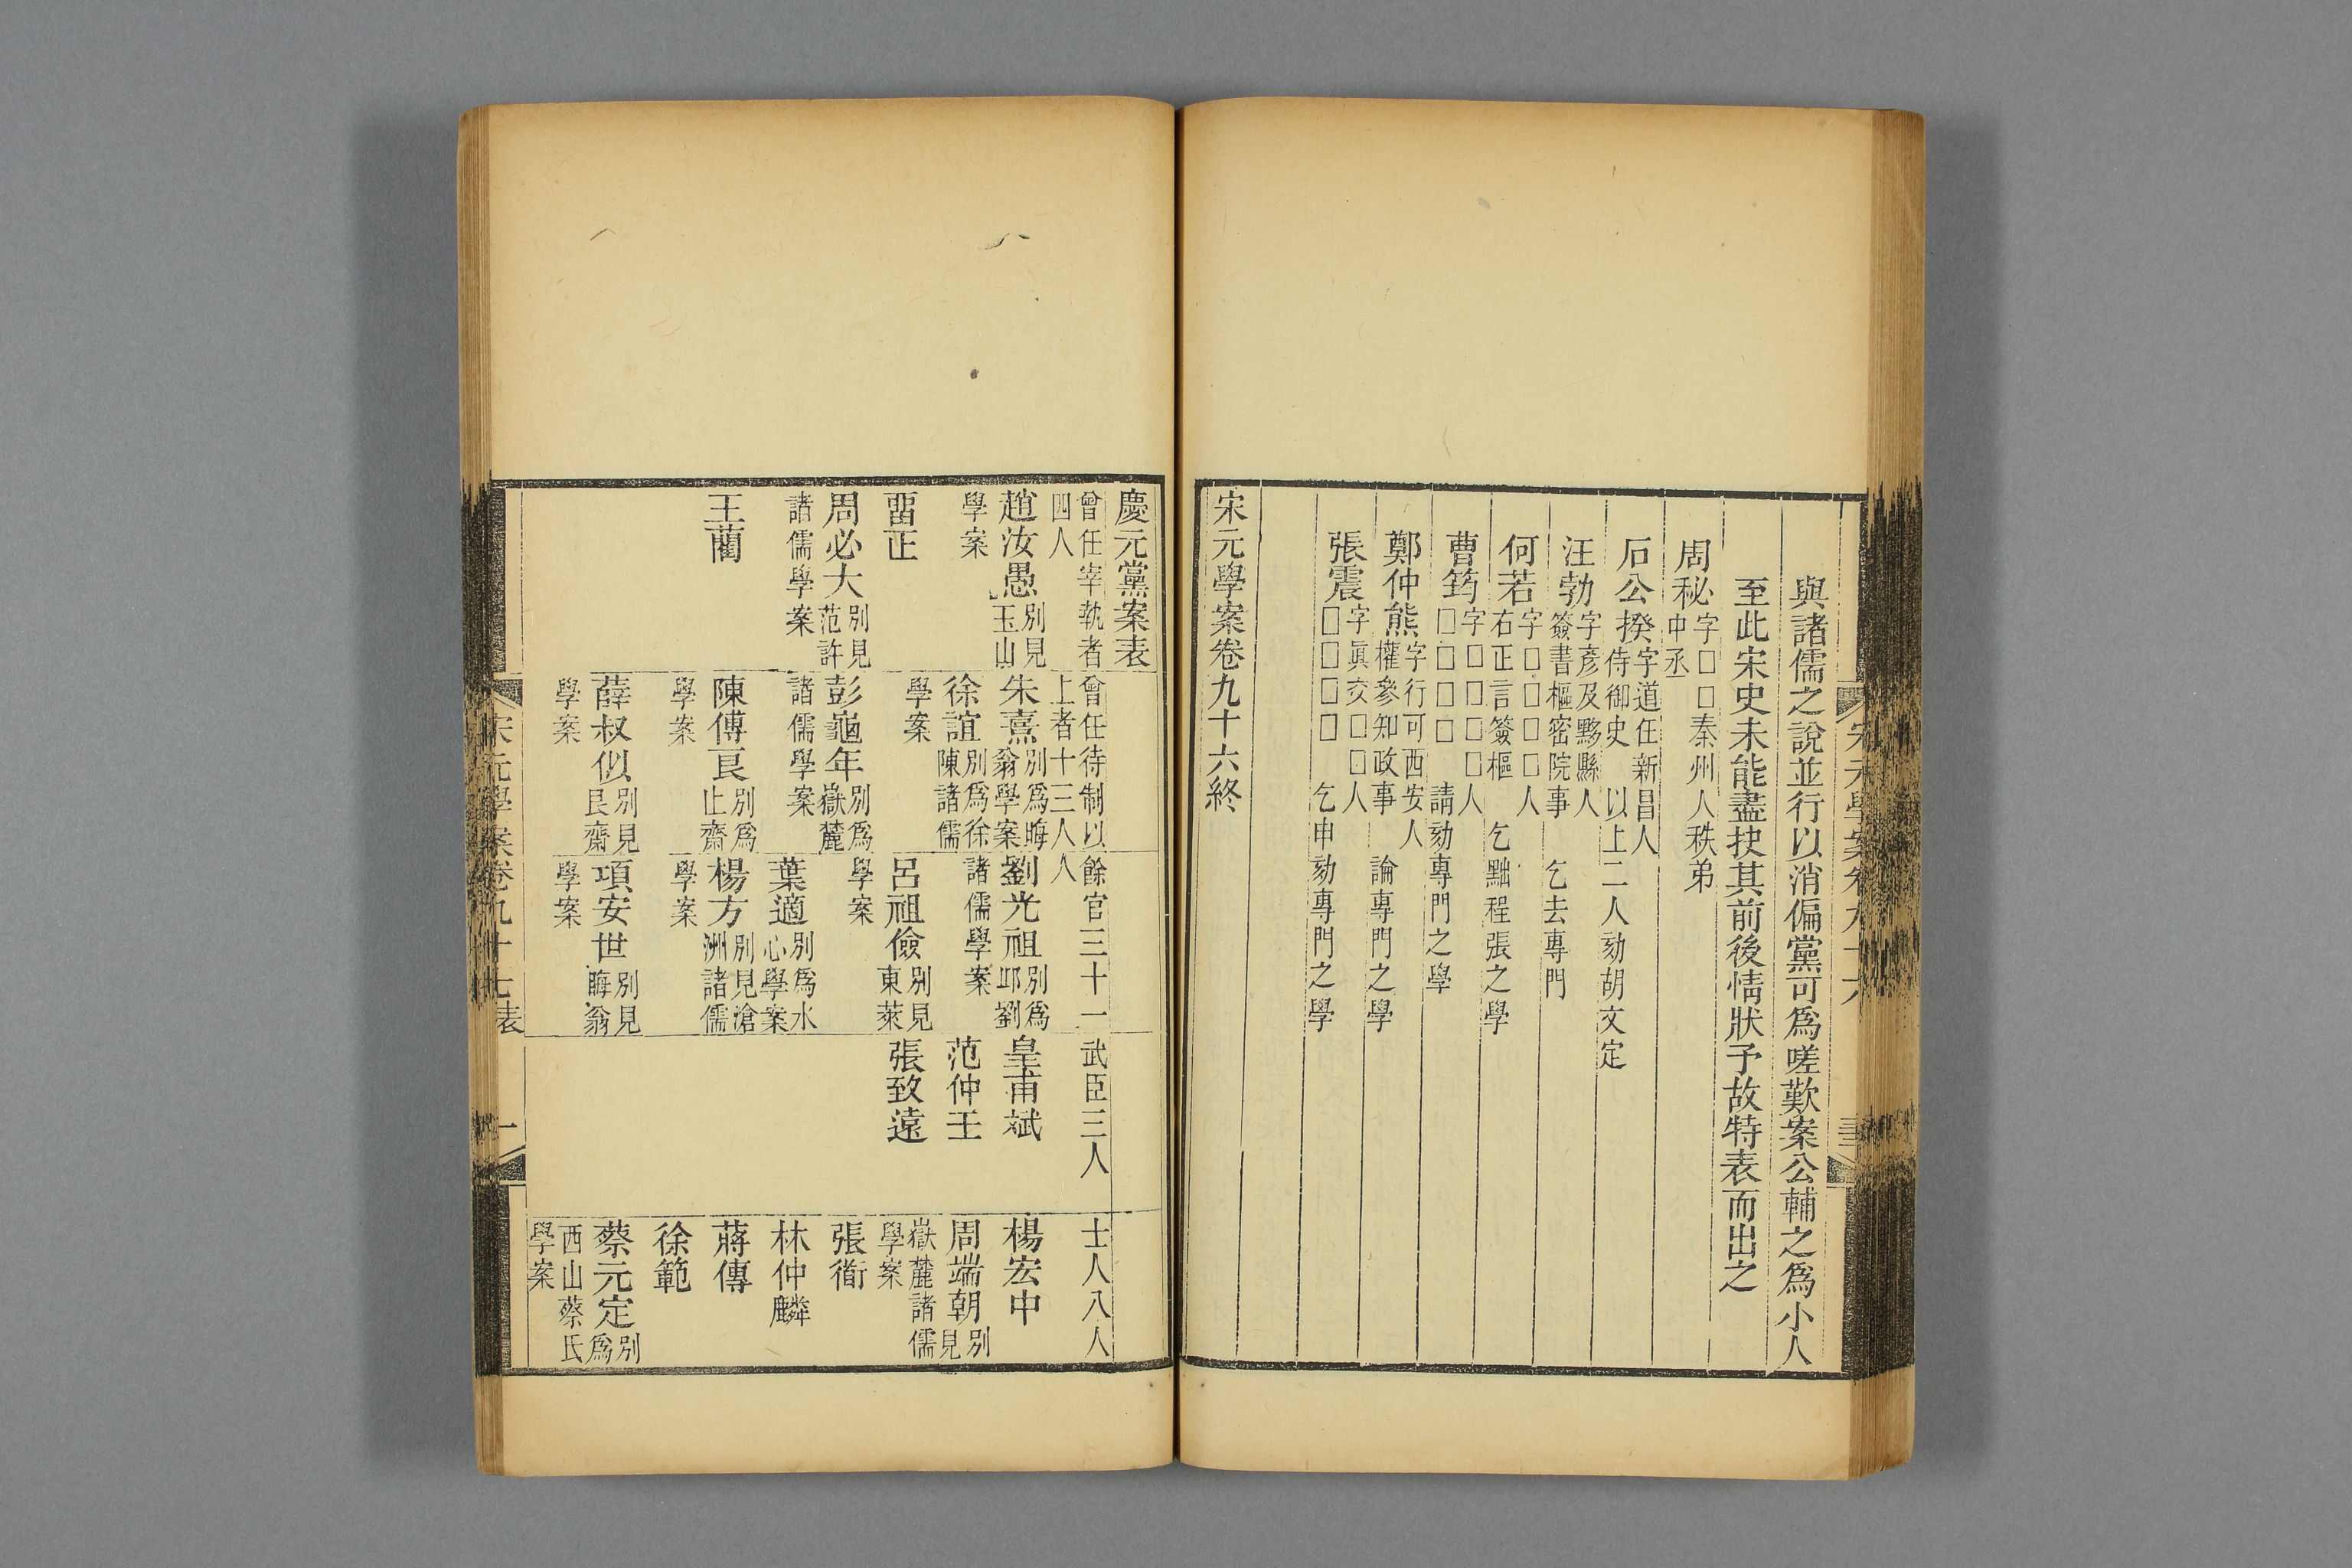 與諸儒之說並行以消偏黨可為嗟歎案公輔之為小人
至此宋史未能盡抉其前後情狀予故特表而出之
周秘字□□秦州人秩弟
中丞
石公揆字道任新昌人
侍御史 以上二人劾胡文定
汪勃字彥及黟縣人
簽書樞密院事 乞去專門
何若字□□□□人
右正言簽樞 乞黜程張之學
曹筠字□□□□人
□□□□ 請劾專門之學
鄭仲熊字行可西安人
權參知政事 論專門之學
張震字眞交□□人
□□□□ 乞申劾專門之學
宋元學案卷九十六終
宋元學案卷九十六
慶元黨案表
曾任宰執者
四人
趙汝愚別見
玉山
學案
畱正
周必大別見
范許
諸儒學案
王藺
曾任待制以
上者十三人
朱熹別為晦
翁學案
徐誼別為徐
陳諸儒
學案
彭龜年別為
嶽麓
諸儒學案
陳傅良別為
止齋
學案
薛叔似別見
艮齋
學案
餘官三十一
人
劉光祖別為
邱劉
諸儒學案
呂祖儉別見
東萊
學案
葉適別為水
心學案
楊方別見滄
洲諸儒
學案
項安世別見
晦翁
學案
武臣三人
皇甫斌
范仲壬
張致遠
士人八人
楊宏中
周端朝別
見
嶽麓諸儒
學案
張衜
林仲麟
蔣傳
徐範
蔡元定別
為
西山蔡氏
學案
宋元學案卷九十七表
一